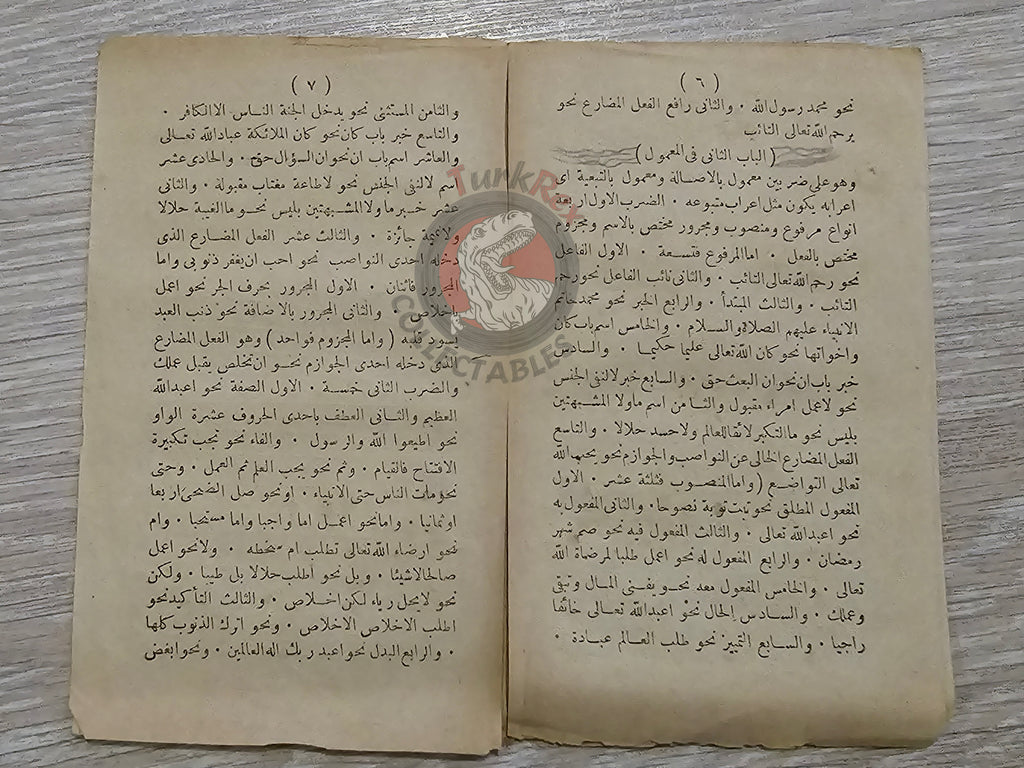 ( ٦ )
نحو محمد رسول الله ٠ والثانى رافع الفعل المضارع نحو
يرحم الله تعالى التائب
( الباب الثانى فى المعمول )
وهو على ضربين معمول بالاصالة ومعمول بالتبعية اى
اعرابه يكون مثل اعراب متبوعه ٠ الضرب الاول اربعة
انواع مرفوع ومنصوب ومجرور مختص بالاسم ومجزوم
مختص بالفعل ٠ اما المرفوع فتسعة ٠ الاول الفاعل
نحو رحم الله تعالى التائب ٠ والثانى نائب الفاعل نحو رحم
التائب ٠ والثالث المبتدأ ٠ والرابع الخبر نحو محمد خاتم
الانبياء عليهم الصلاة والسلام ٠ والخامس اسم باب كان
واخواتها نحو كان الله تعالى عليما حكيما ٠ والسادس
خبر باب ان نحو ان البعث حق ٠ والسابع خبر لا لنفى الجنس
نحو لا عمل امراء مقبول والثامن اسم ما ولا المشبهتين
بليس نحو ما التكبر لائقا للعالم ولا حسد حلالا ٠ والتاسع
الفعل المضارع الخالى عن النواصب والجوازم نحو يحب الله
تعالى التواضع ( واما المنصوب فثلثة عشر ٠ الاول
المفعول المطلق نحو تبت توبة نصوحا ٠ والثانى المفعول به
نحو اعبد الله تعالى ٠ والثالث المفعول فيه نحو صم شهر
رمضان ٠ والرابع المفعول له نحو اعمل طلبا لمرضاة الله
تعالى ٠ والخامس المفعول معه نحو يفنى المال وتبقى
وعملك ٠ والسادس الحال نحو اعبد الله تعالى خائفا
راجيا ٠ والسابع التمييز نحو طلب العالم عبادة ٠
( ٧ )
والثامن المستثنى نحو يدخل الجنة الناس الا الكافر ٠
والتاسع خبر باب كان نحو كان الملائكة عباد الله تعالى
والعاشر اسم باب ان نحو ان السؤال حق ٠ والحادى عشر
اسم لا لنفى الجنس نحو لا طاعة مغتاب مقبولة ٠ والثانى
عشر خبر ما ولا المشبهتين بليس نحو ما الغيبة حلالا
ولا نميمة جائزة ٠ والثالث عشر الفعل المضارع الذى
دخله احدى النواصب نحو احب ان يغفر ذنوبى واما
المجرور فاثنان ٠ الاول المجرور بحرف الجر نحو اعمل
باخلاص ٠ والثانى المجرور بالاضافة نحو ذنب العبد
يسود قلبه ( واما المجزوم فواحد ) وهو الفعل المضارع
الذى دخله احدى الجوازم نحو ان تخلص يقبل عملك
والضرب الثانى خمسة ٠ الاول الصفة نحو اعبد الله
العظيم والثانى العطف باحدى الحروف عشرة الواو
نحو اطيعوا الله والرسول ٠ والفاء نحو تجب تكبيرة
الافتتاح فالقيام ٠ وثم نحو يجب العلم ثم العمل ٠ وحتى
نحو مات الناس حتى الانبياء ٠ او نحو صل الضحى اربعا
او ثمانيا ٠ واما نحو اعمل اما واجبا واما مستحبا ٠ وام
نحو ارضاء الله تعالى تطلب ام سخطه ٠ ولا نحو اعمل
صالحا لا شيئا ٠ وبل نحو اطلب حلالا بل طيبا ٠ ولكن
نحو لا يحل رياء لكن اخلاص ٠ والثالث التأكيد نحو
اطلب الاخلاص الاخلاص ٠ ونحو اترك الذنوب كلها
٠ والرابع البدل نحو اعبد ربك اله العالمين ٠ ونحو ابغض
JunkRex
COLLECTABLES